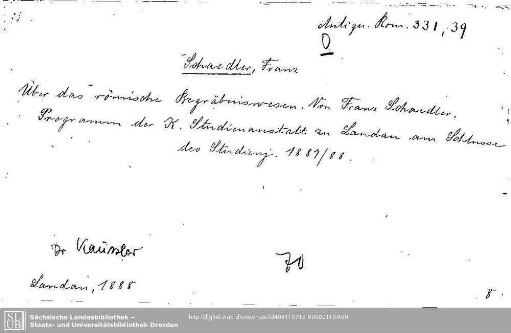 Antiqu. Rom. 331, 39
Schaedler, Franz
Über das römische Begräbniswesen. Von Franz Schaedler.
Programm der K. Studienanstalt zu Landau am Schlusse
des Studienj. 1887/88.
Dr
70
Landau, 1888
8.
Sächsische Landesbibliothek –
Staats- und Universitätsbibliothek Dresden